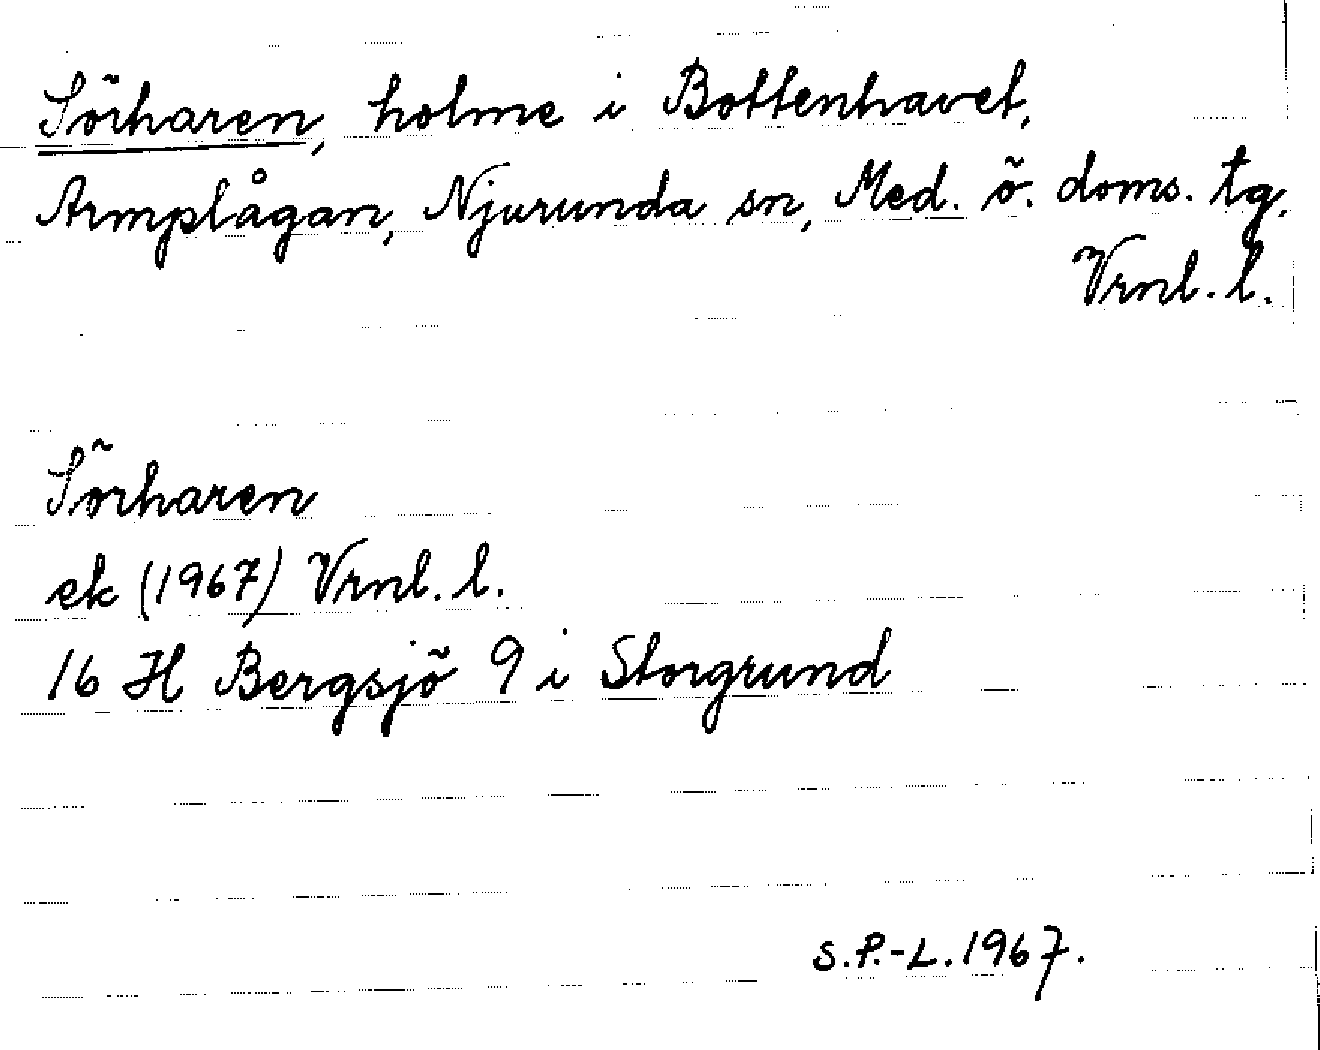 Sörharen, holme i Bottenhavet,
Armplågan, Njurunda sn, Med. ö. doms. tg.
Vrnl. l.
Sörharen
ek (1967) Vrnl. l.
16 H Bergsjö 9 i Storgrund
S.P.-L. 1967.